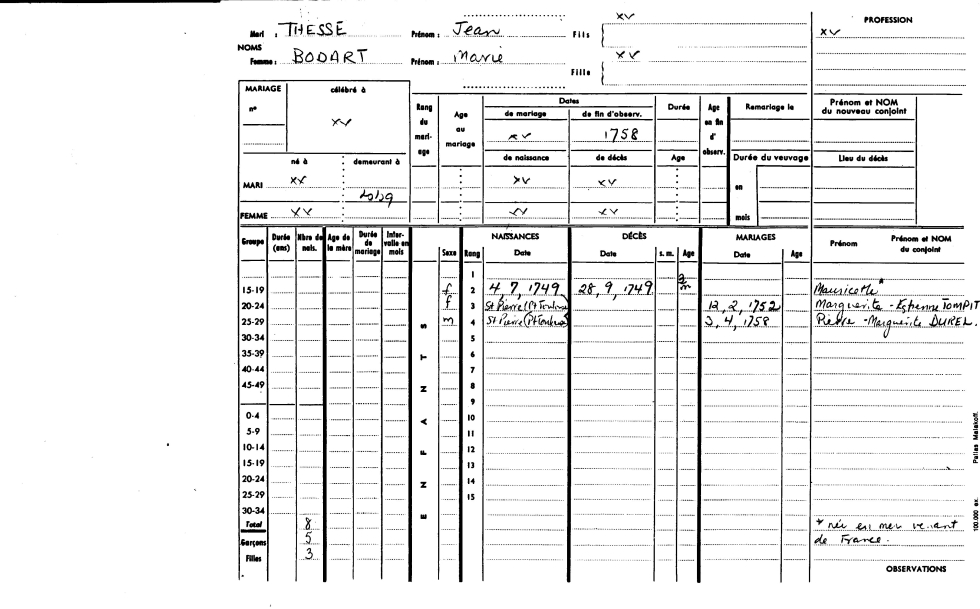 Mari : THESSE Prénom : Jean Fils xv
NOMS
Femme : BODART Prénom : Marie Fille xv
PROFESSION
xv
MARIAGE célébré à
n°
xv
né à demeurant à
MARI xv
FEMME xv
Rang du mari-age
Age au mariage
Dates
de mariage de fin d'observ.
xv 1758
de naissance de décès
xv xv
xv xv
Durée
Age
Age en fin d'observ.
Remariage le
Durée du veuvage
en
mois
Prénom et NOM du nouveau conjoint
Lieu du décès
Groupe Durée (ans) Nbre de nais. Age de la mère Durée de mariage Inter-valle en mois
ENFANTS
NAISSANCES DÉCÈS MARIAGES
Sexe Rang Date Date s. m. Age Date Age Prénom Prénom et NOM du conjoint
1
15-19 f 2 4, 7, 1749 28, 9, 1749 Mauricette*
20-24 f 3 St Pierre (Pt Toulouse) 12, 2, 1752 Marguerite - TOMPIT
25-29 m 4 St Pierre (Pt Toulouse) 3, 4, 1758 Pierre - Marguerite DUREL.
30-34 5
35-39 6
40-44 7
45-49 8
9
0-4 10
5-9 11
10-14 12
15-19 13
20-24 14
25-29 15
30-34
Total 8
Garçons 5
Filles 3
* née en mer venant
de France.
OBSERVATIONS
100.000 ex. Pallas Malakoff.